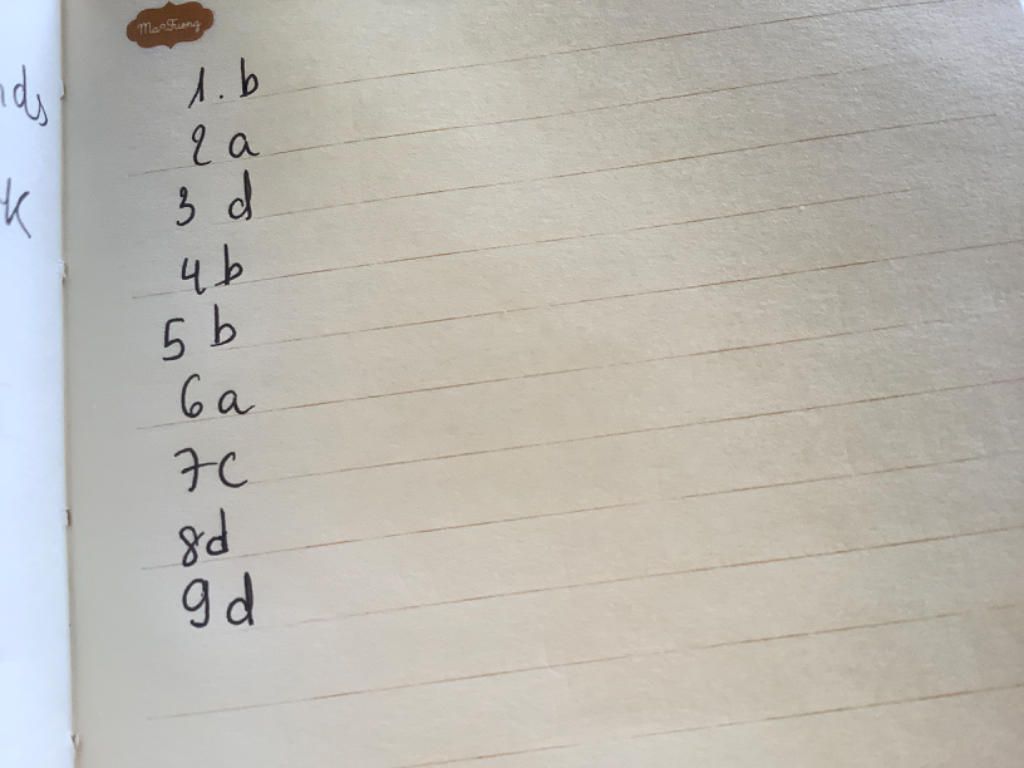 1. b
2 a
3 d
4 b
5 b
6 a
7 c
8 d
9 d